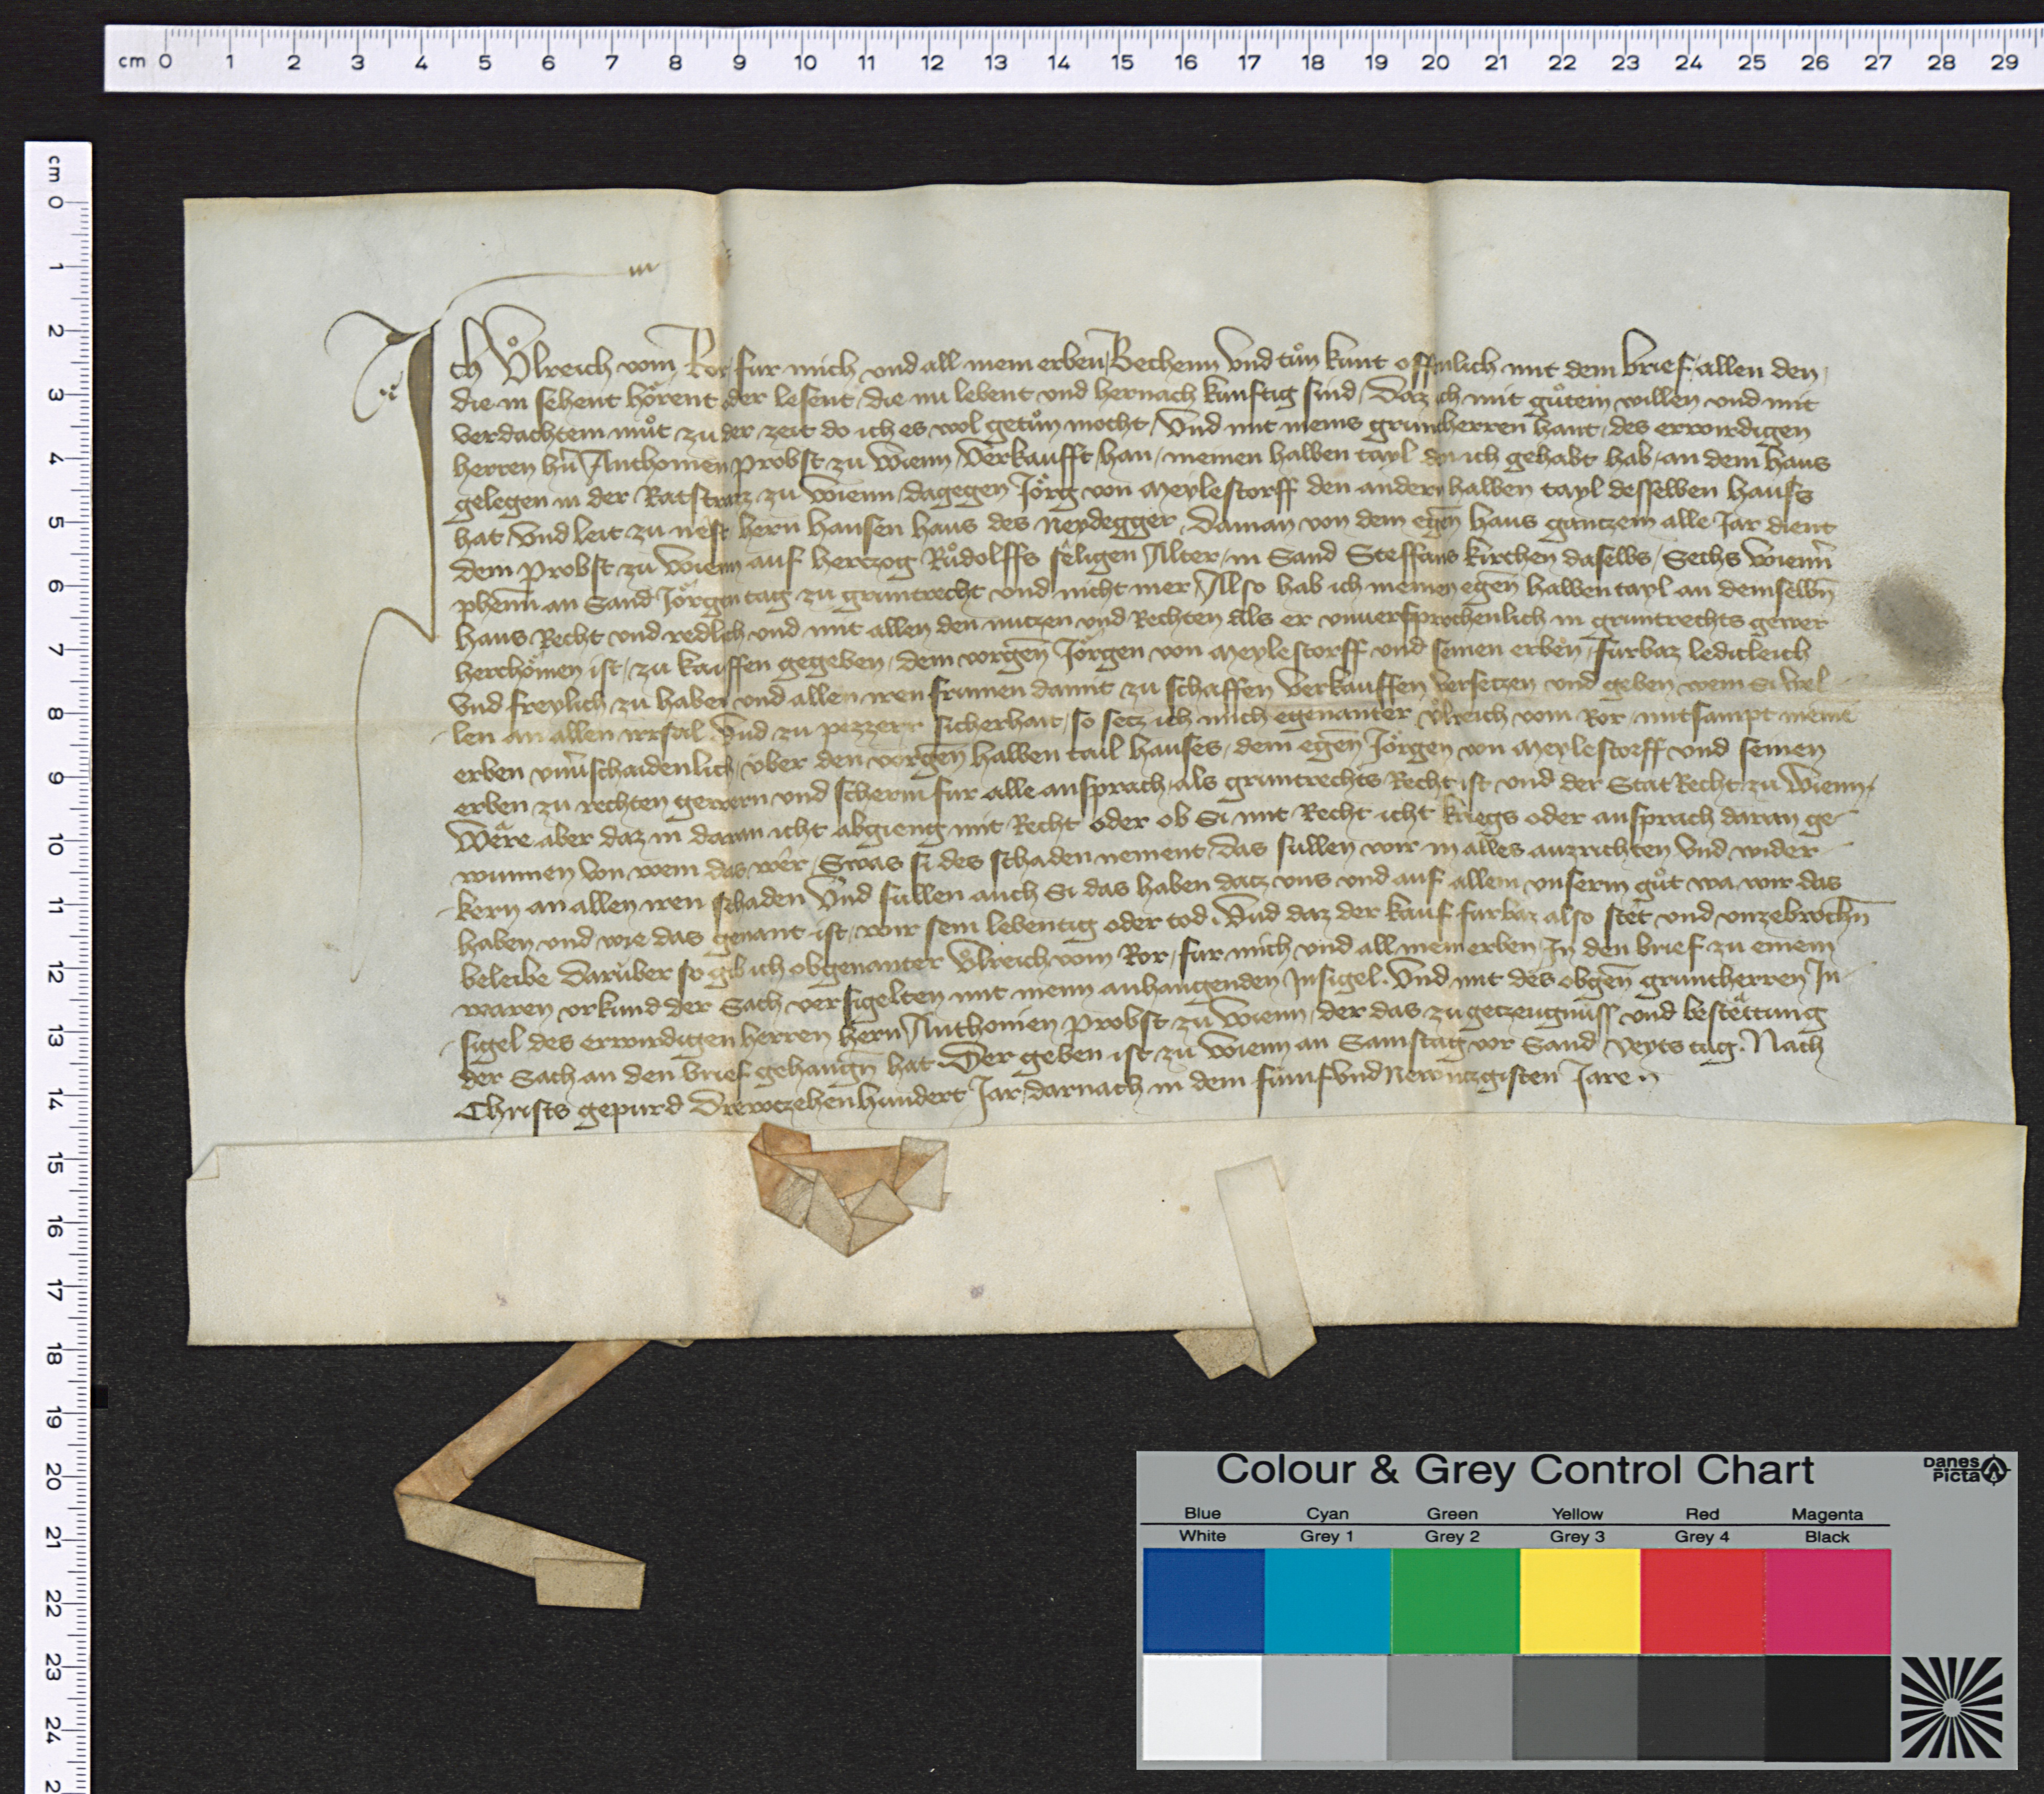 cm 0 1 2 3 4 5 6 7 8 9 10 11 12 13 14 15 16 17 18 19 20 21 22 23 24 25 26 27 28 29
cm 0 1 2 3 4 5 6 7 8 9 10 11 12 13 14 15 16 17 18 19 20 21 22 23 24
Ich Ůlreich vom Ror fur mich und all mein erben Bechenn Und tůn kunt offenlich mit dem brief allen den
die in sehent hörent oder lesent die nu lebent und hernach kunftig sind Daz ich mit gůtem willen und mit
verdachtem můt zu der zeit do ich es wol getůn mocht Und mit meins gruntherren hant des erwirdigen
herren hrn Anthonien probst zu Wienn Verkaufft han meinen halben tayl den ich gehabt hab an dem haus
gelegen in der Ratstrazz zu Wienn dagegen Jörg von Meylestorff den andern halben tayl desselben hauss
hat Und leit zu nest hern Hansen haus des Neydegger Daman von dem egen haus gantzem alle Jar dient
dem Probst zu Wienn auf hertzog Růdolffs seligen Alter in Sand Steffans kirchen daselbs Sechs Wienner
phenn an Sand Jörgen tag zu gruntrecht und nicht mer Also hab ich meinen egen halben tayl an demselbn
haus Recht und redlich und mit allen den nutzen und Rechten Als er unversprochenlich in gruntrechts gewer
herchömen ist zu kauffen gegeben dem vorgen Jörgen von Meylestorff und seinen erben furbaz ledicleich
Und freylich zu haben und allen iren frumen damit zu schaffen Verkauffen Versetzen und geben wem si wel
len an allen irrsal Und zu pezzerr sicherhait so setz ich mich egenanter Ůlreich vom Ror mitsampt meinē
erben unverschaidenlich über den vorgen halben tail hauses dem egen Jörgen von Meylestorff und seinen
erben zu rechten gewern und scherm fur alle ansprach als gruntrechts Recht ist und der Stat Recht zu Wienn
Wēre aber daz in daran icht abgieng mit Recht oder ob Si mit Recht icht kriegs oder ansprach daran ge
wunnen Von wem das wēr Swas si des schaden nement das sullen wir in alles auzrichten Und wider
kern an allen iren schaden Und sullen auch Si das haben datz uns und auf allem unserm gůt wa wir das
haben und wie das genant ist wir sein lebentig oder tod Und daz der kauf furbaz also stēt und unzebrochn
beleibe Darüber so gib ich obgenanter Ůlreich vom Ror fur mich und all mein erben In den brief zu einem
waren urkund der Sach versigelten mit meim anhangenden Insigel Und mit des obgen gruntherren In
sigel des erwirdigen herren hern Anthonien Probst zu Wienn der das zu getzeugnuss und bestēttung
der Sach an den brief gehangn hat Der geben ist zu Wienn an Samstag vor Sand Veyts tag. Nach
Christs gepurd Drewtzehenhundert Jar darnach in dem fumfundNewntzgisten Jare
Colour & Grey Control Chart
Danes Picta
Blue Cyan Green Yellow Red Magenta
White Grey 1 Grey 2 Grey 3 Grey 4 Black